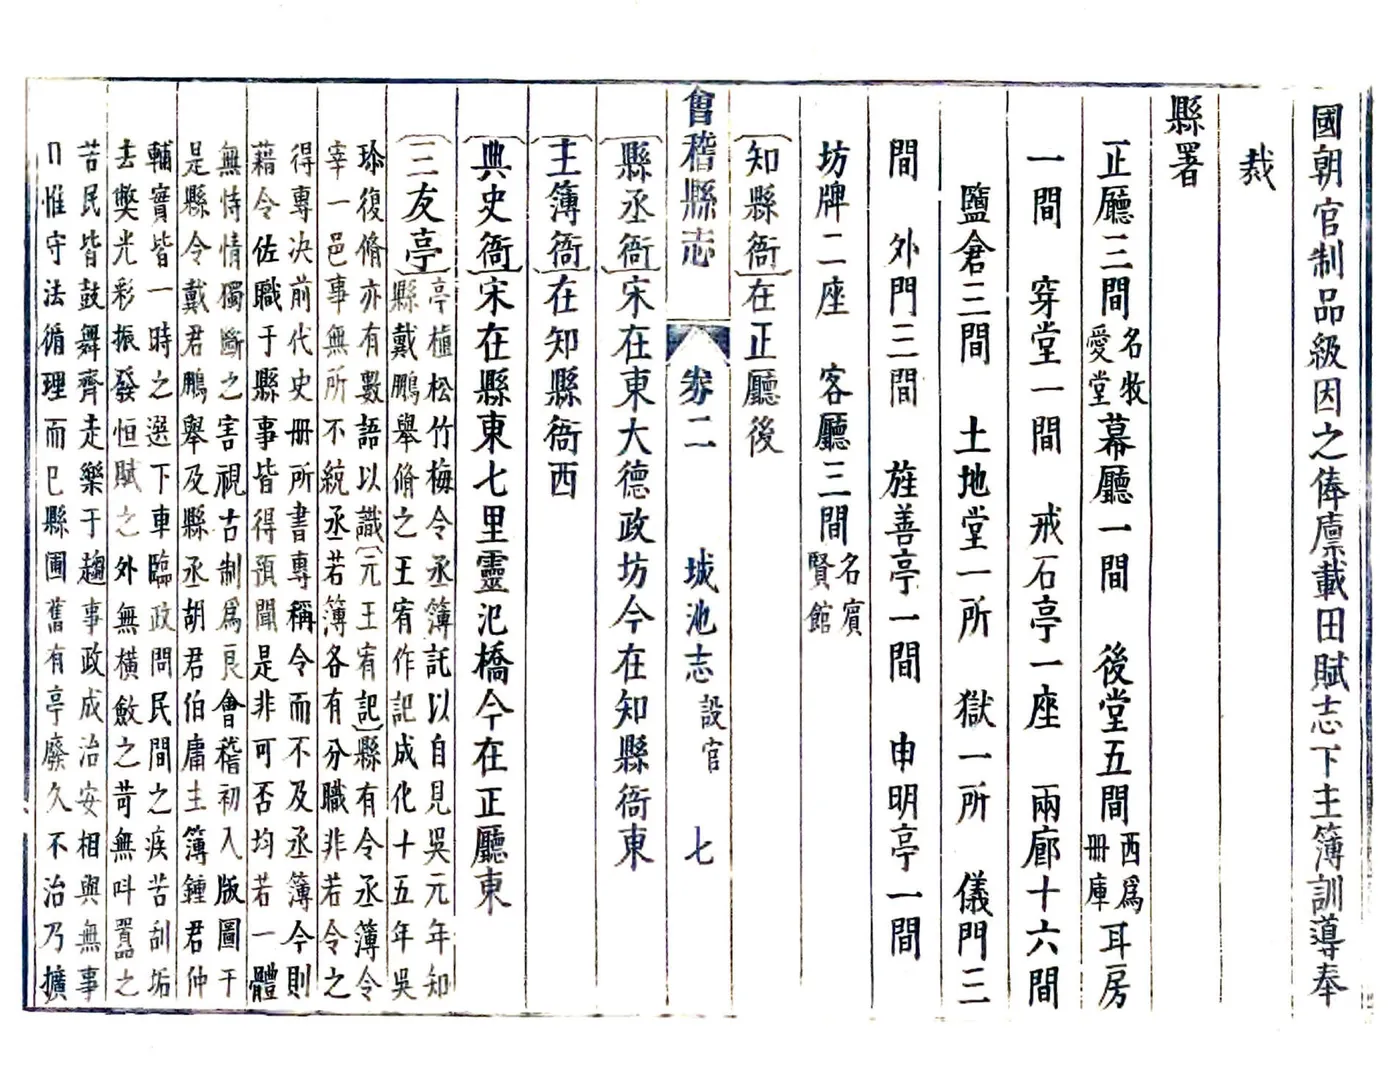 國朝官制品級因之俸廩載田賦志下主簿訓導奉
裁
縣署
正廳三間名牧愛堂幕廳一間 後堂五間西爲冊庫耳房
一間 穿堂一間 戒石亭一座 兩廊十六間
鹽倉三間 土地堂一所 獄一所 儀門三
間 外門三間 旌善亭一間 申明亭一間
坊牌二座 客廳三間名賓賢館
知縣衙在正廳後
會稽縣志 卷二 城池志 設官 七
縣丞衙宋在東大德政坊今在知縣衙東
主簿衙在知縣衙西
典史衙宋在縣東七里靈汜橋今在正廳東
三友亭
亭植松竹梅令丞簿託以自見吳元年知
縣戴鵬舉脩之王宥作記成化十五年吳
瑹復脩亦有數語以識元王宥記縣有令丞簿令
宰一邑事無所不統丞若簿各有分職非若令之
得專决前代史冊所書專稱令而不及丞簿今則
藉令佐職于縣事皆得預聞是非可否均若一體
無恃情獨斷之害視古制爲良會稽初入版圖于
是縣令戴君鵬舉及縣丞胡君伯庸主簿鍾君仲
輔實皆一時之選下車臨政問民間之疾苦刮垢
去獘光彩振發恒賦之外無橫斂之苛無叫囂之
苦民皆鼓舞齊走樂于趨事政成治安相與無事
惟守法循理而已縣圃舊有亭廢久不治乃擴